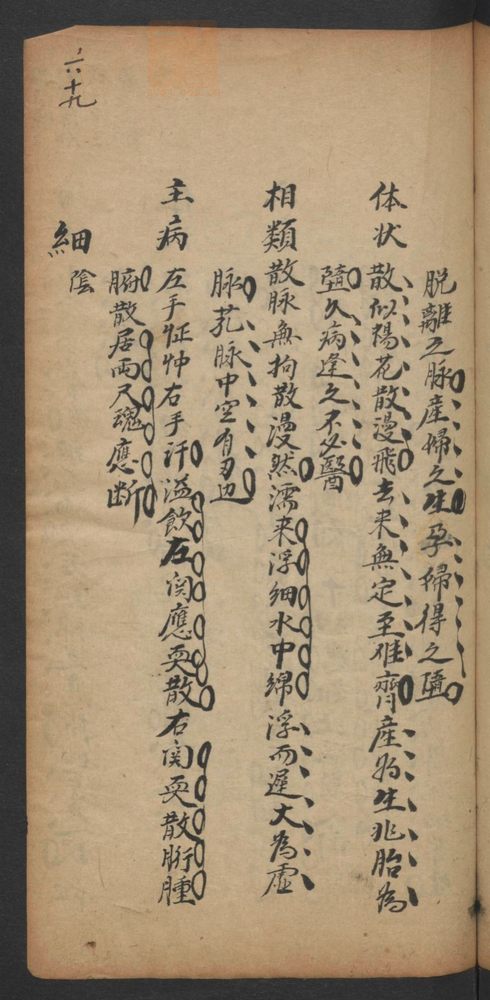 脫離之脉產婦之生孕婦得之墮
体状 散似楊花散漫飛去来無定至难齊產為生兆胎為
墮久病逢之不必醫
相類 散脉無拘散漫然濡来浮細水中綿浮而遲大為虛
脉芤脉中空有两边
主病 左手怔忡右手汗溢飲左関應耎散右関耎散胻腫
腑散居両尺魂應断
細 陰
六十九